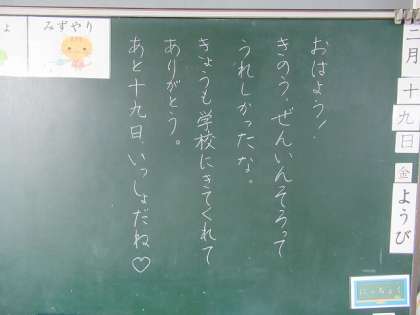 二月十九日金ようび
おはよう!
きのう、ぜんいんそろって
うれしかったな。
きょうも学校にきてくれて
ありがとう。
あと十九日、いっしょだね♡
みずやり
よ
にっちょく